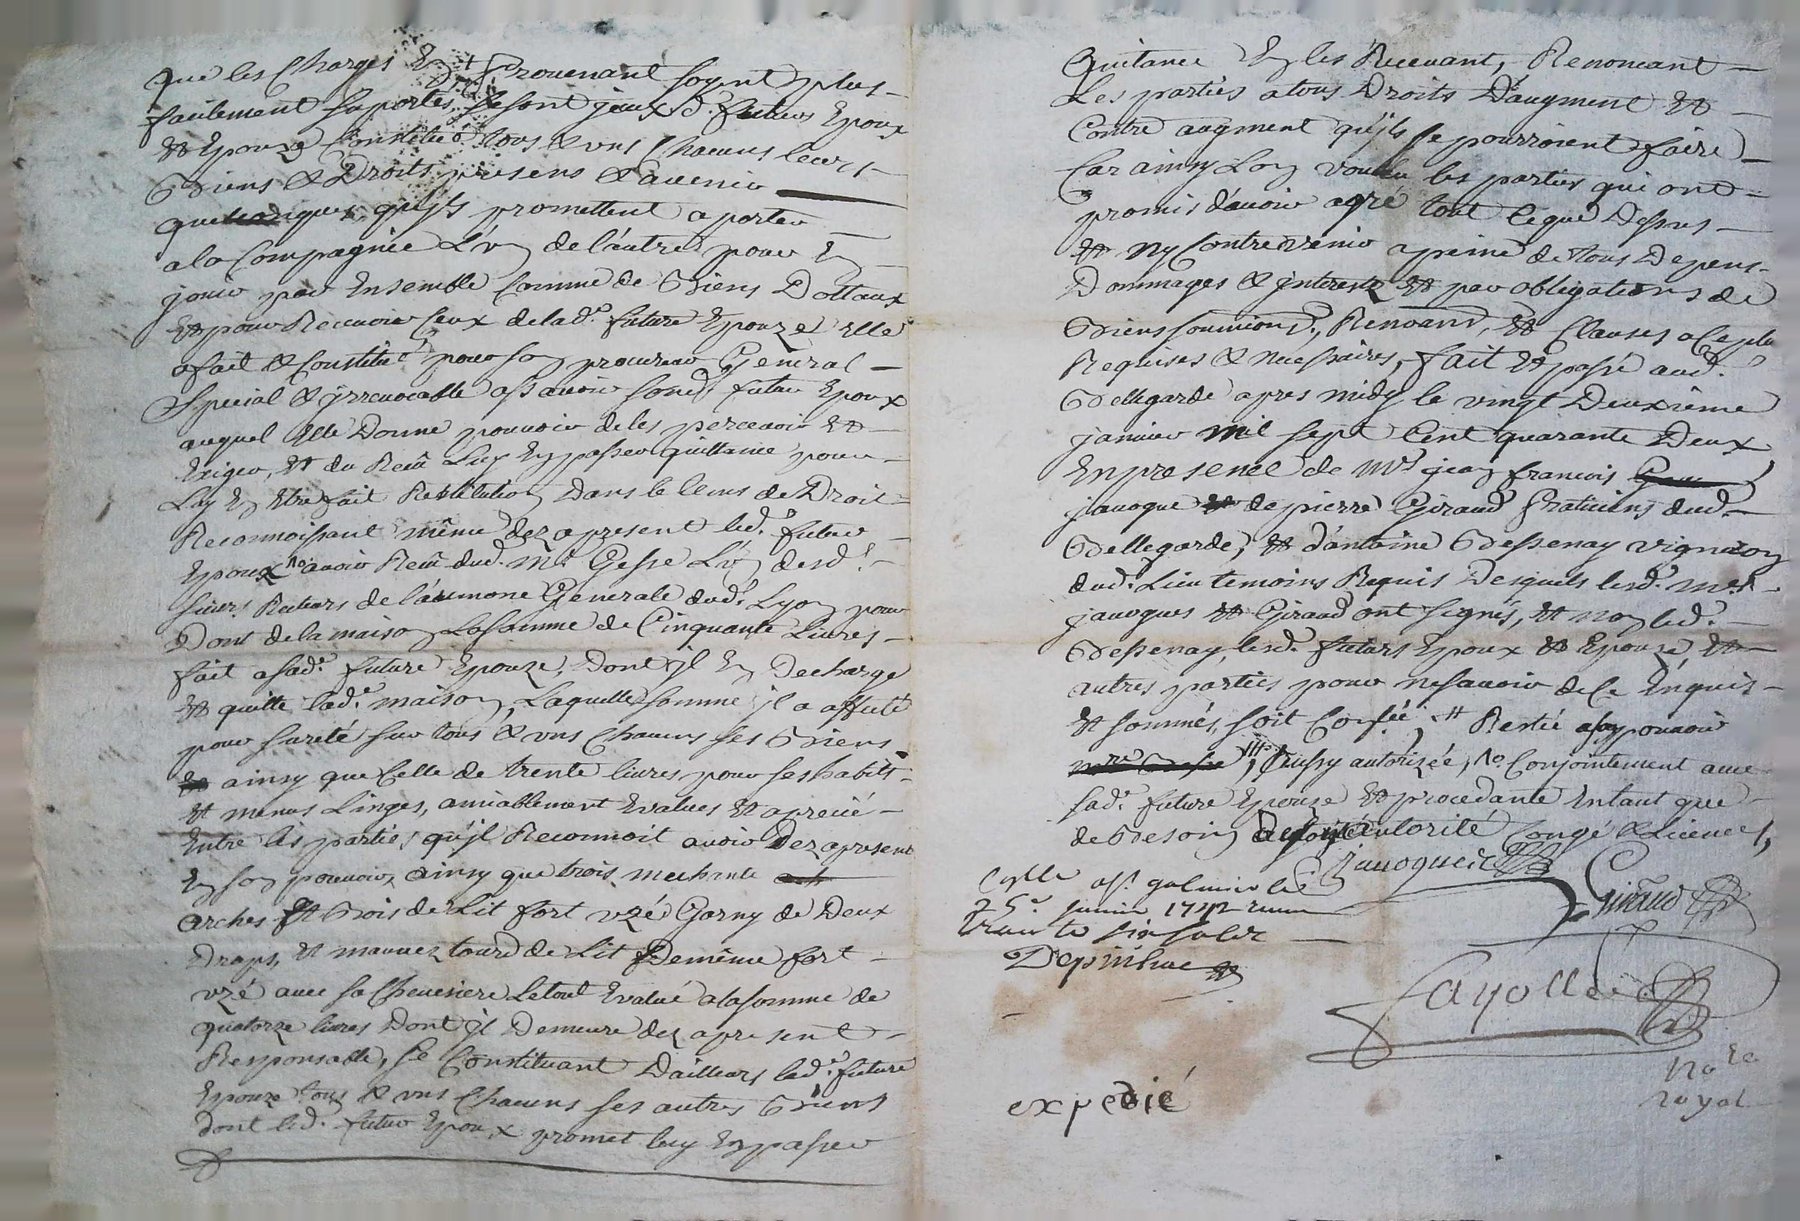 que les Charges En Prouenant soyent plus
facilement suportés, se sont jceux d. futurs Epoux
et Epouze Constitué tous & uns Chacuns leurs
Biens & Droits presens & auenir
quelconques, qu'jls promettent aporter
a la Compagniée L'un de l'autre pour En
jouir par Ensemble Comme de Biens Dottaux
et pour Receuoir Ceux de lad.e future Epouze Elle
a fait & Constitué pour son procureur General
Special & jrreuocable assauoir sond. futur Epoux
auquel Elle Donne pouuoir de les perceuoir et
Exiger, et du Reçû Luy En passer quittance pour
Luy En Etre fait Restitution Dans le tems de Droit
Reconnoissant même dez apresent led. futur
Epoux auoir Reçû dud. Mr. Gesse L'un desd.s
sieurs Recteurs de l'aumone Generale dud. Lyon pour
Dont de la maison La somme de Cinquante Liures
fait a sad.e future Epouze, Dont jl En Decharge
et quitte lad.e maison, Laquelle somme jl a affecté
pour sureté sur tous & uns Chacuns ses Biens
ainsy que Celle de trente liures pour ses habits
et menus Linges, amiablement Evalués et apretié
Entre les parties qu'jl Reconnoit auoir Dez apresent
En son pouuoir, ainsy que trois mechante
arches et Bois de Lit fort uzé Garny de Deux
Draps, et mauuez tourd de Lit De même fort
uzé auec sa Cheuesiere Le tout Evalué a la somme de
quatorze liures Dont jl Demeure dez apresent
Responsable, se Constituant D'ailleurs lad.e future
Epouze tous & uns Chacuns ses autres Biens
dont led. futur Epoux promet luy En passer
Quitance En les Receuant, Renoncant
Les parties a tous Droits D'augment et
Contre augment qu'jls se pourroient faire
Car ainsy L'on voulu les parties qui ont
promis d'auoir agré tout Ce que Dessus
et ny Contreuenir a peine de tous Depens
Dommages & jnterests et par obligations de
Biens soumions, Renonc.n, et Clauses a Ce plus
Requises & necessaires, fait et passé aud.
Bellegarde apres midy le vingt Deuxieme
januier mil sept Cent quarante Deux
En presence de Mr jean francois
jauoque de pierre Giraud Praticiens dud.
Bellegarde, et d'antoine Bessenay vigneron
dud. Lieu temoins Requis Desquels lesd. Mes
jauoques et Giraud ont signés, et non led.
Bessenay, lesd. futurs Epoux et Epouze, et
autres parties pour ne sauoir de Ce Enquis
et sommés, soit Conssée, Restié a son pouuoir
aussy autorisée, Conjointement auec
sad.e future Epouze et procedante Entant que
de Besoin de son autorité Congé & Licence,
jauoque
Giraud
Cplle a st. galmier le
25e januier 1742 recu
trante six solz
Depinhac
Fayolle
no.re
royal
expedié